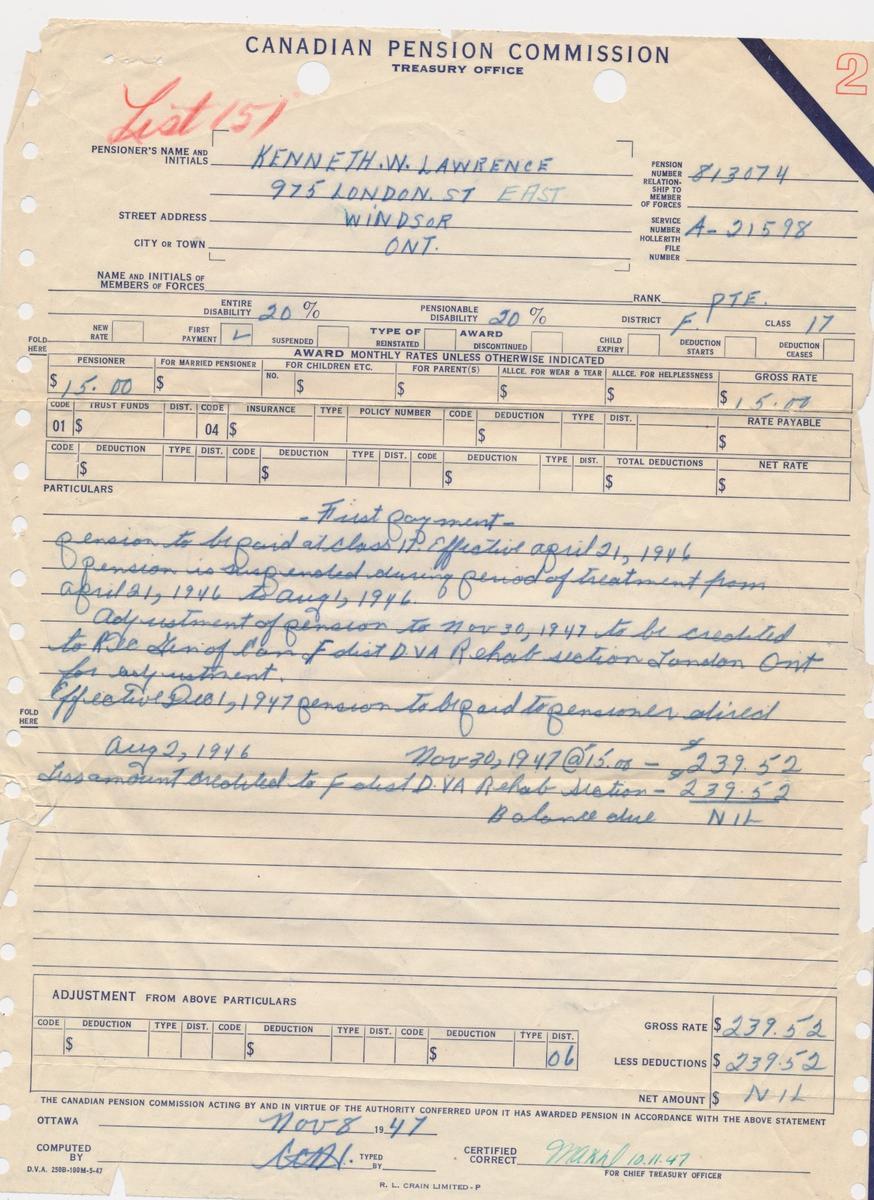 CANADIAN PENSION COMMISSION
TREASURY OFFICE
2
List 151
PENSIONER'S NAME AND INITIALS KENNETH. W. LAWRENCE
PENSION NUMBER 813074
RELATIONSHIP TO MEMBER OF FORCES
975 LONDON. ST EAST
STREET ADDRESS WINDSOR
SERVICE NUMBER A-21598
HOLLERITH FILE NUMBER
CITY OR TOWN ONT.
NAME AND INITIALS OF MEMBERS OF FORCES
RANK PTE.
ENTIRE DISABILITY 20 % PENSIONABLE DISABILITY 20 % DISTRICT F. CLASS 17
FOLD HERE
NEW RATE FIRST PAYMENT SUSPENDED TYPE OF AWARD REINSTATED DISCONTINUED CHILD EXPIRY DEDUCTION STARTS DEDUCTION CEASES
AWARD MONTHLY RATES UNLESS OTHERWISE INDICATED
PENSIONER FOR MARRIED PENSIONER FOR CHILDREN ETC. FOR PARENT(S) ALLCE. FOR WEAR & TEAR ALLCE. FOR HELPLESSNESS GROSS RATE
$ 15.00 $ NO. $ $ $ $ $ 15.00
CODE TRUST FUNDS DIST. CODE INSURANCE TYPE POLICY NUMBER CODE DEDUCTION TYPE DIST. RATE PAYABLE
01 $ 04 $ $ $
CODE DEDUCTION TYPE DIST. CODE DEDUCTION TYPE DIST. CODE DEDUCTION TYPE DIST. TOTAL DEDUCTIONS NET RATE
$ $ $ $ $
PARTICULARS
- First payment -
pension to be paid at class 17. Effective april 21, 1946
pension is suspended during period of treatment from
april 21, 1946 to Aug 1, 1946.
Adjustment of pension to Nov 30, 1947 to be credited
to Rec Gen of Can F dist D.VA Rehab section London Ont
for adjustment.
Effective Dec 1, 1947 pension to be paid to pensioner direct
FOLD HERE
Aug 2, 1946 Nov 30, 1947 @ 15.00 - $ 239.52
Less amount credited to F dist D.VA Rehab section - $ 239.52
Balance due NIL
ADJUSTMENT FROM ABOVE PARTICULARS
CODE DEDUCTION TYPE DIST. CODE DEDUCTION TYPE DIST. CODE DEDUCTION TYPE DIST.
$ $ $ 06
GROSS RATE $ 239.52
LESS DEDUCTIONS $ 239.52
NET AMOUNT $ NIL
THE CANADIAN PENSION COMMISSION ACTING BY AND IN VIRTUE OF THE AUTHORITY CONFERRED UPON IT HAS AWARDED PENSION IN ACCORDANCE WITH THE ABOVE STATEMENT
OTTAWA Nov 8 1947
COMPUTED BY TYPED BY CERTIFIED CORRECT 10.11.47
FOR CHIEF TREASURY OFFICER
D.V.A. 250B-100M-5-47
R. L. CRAIN LIMITED - P